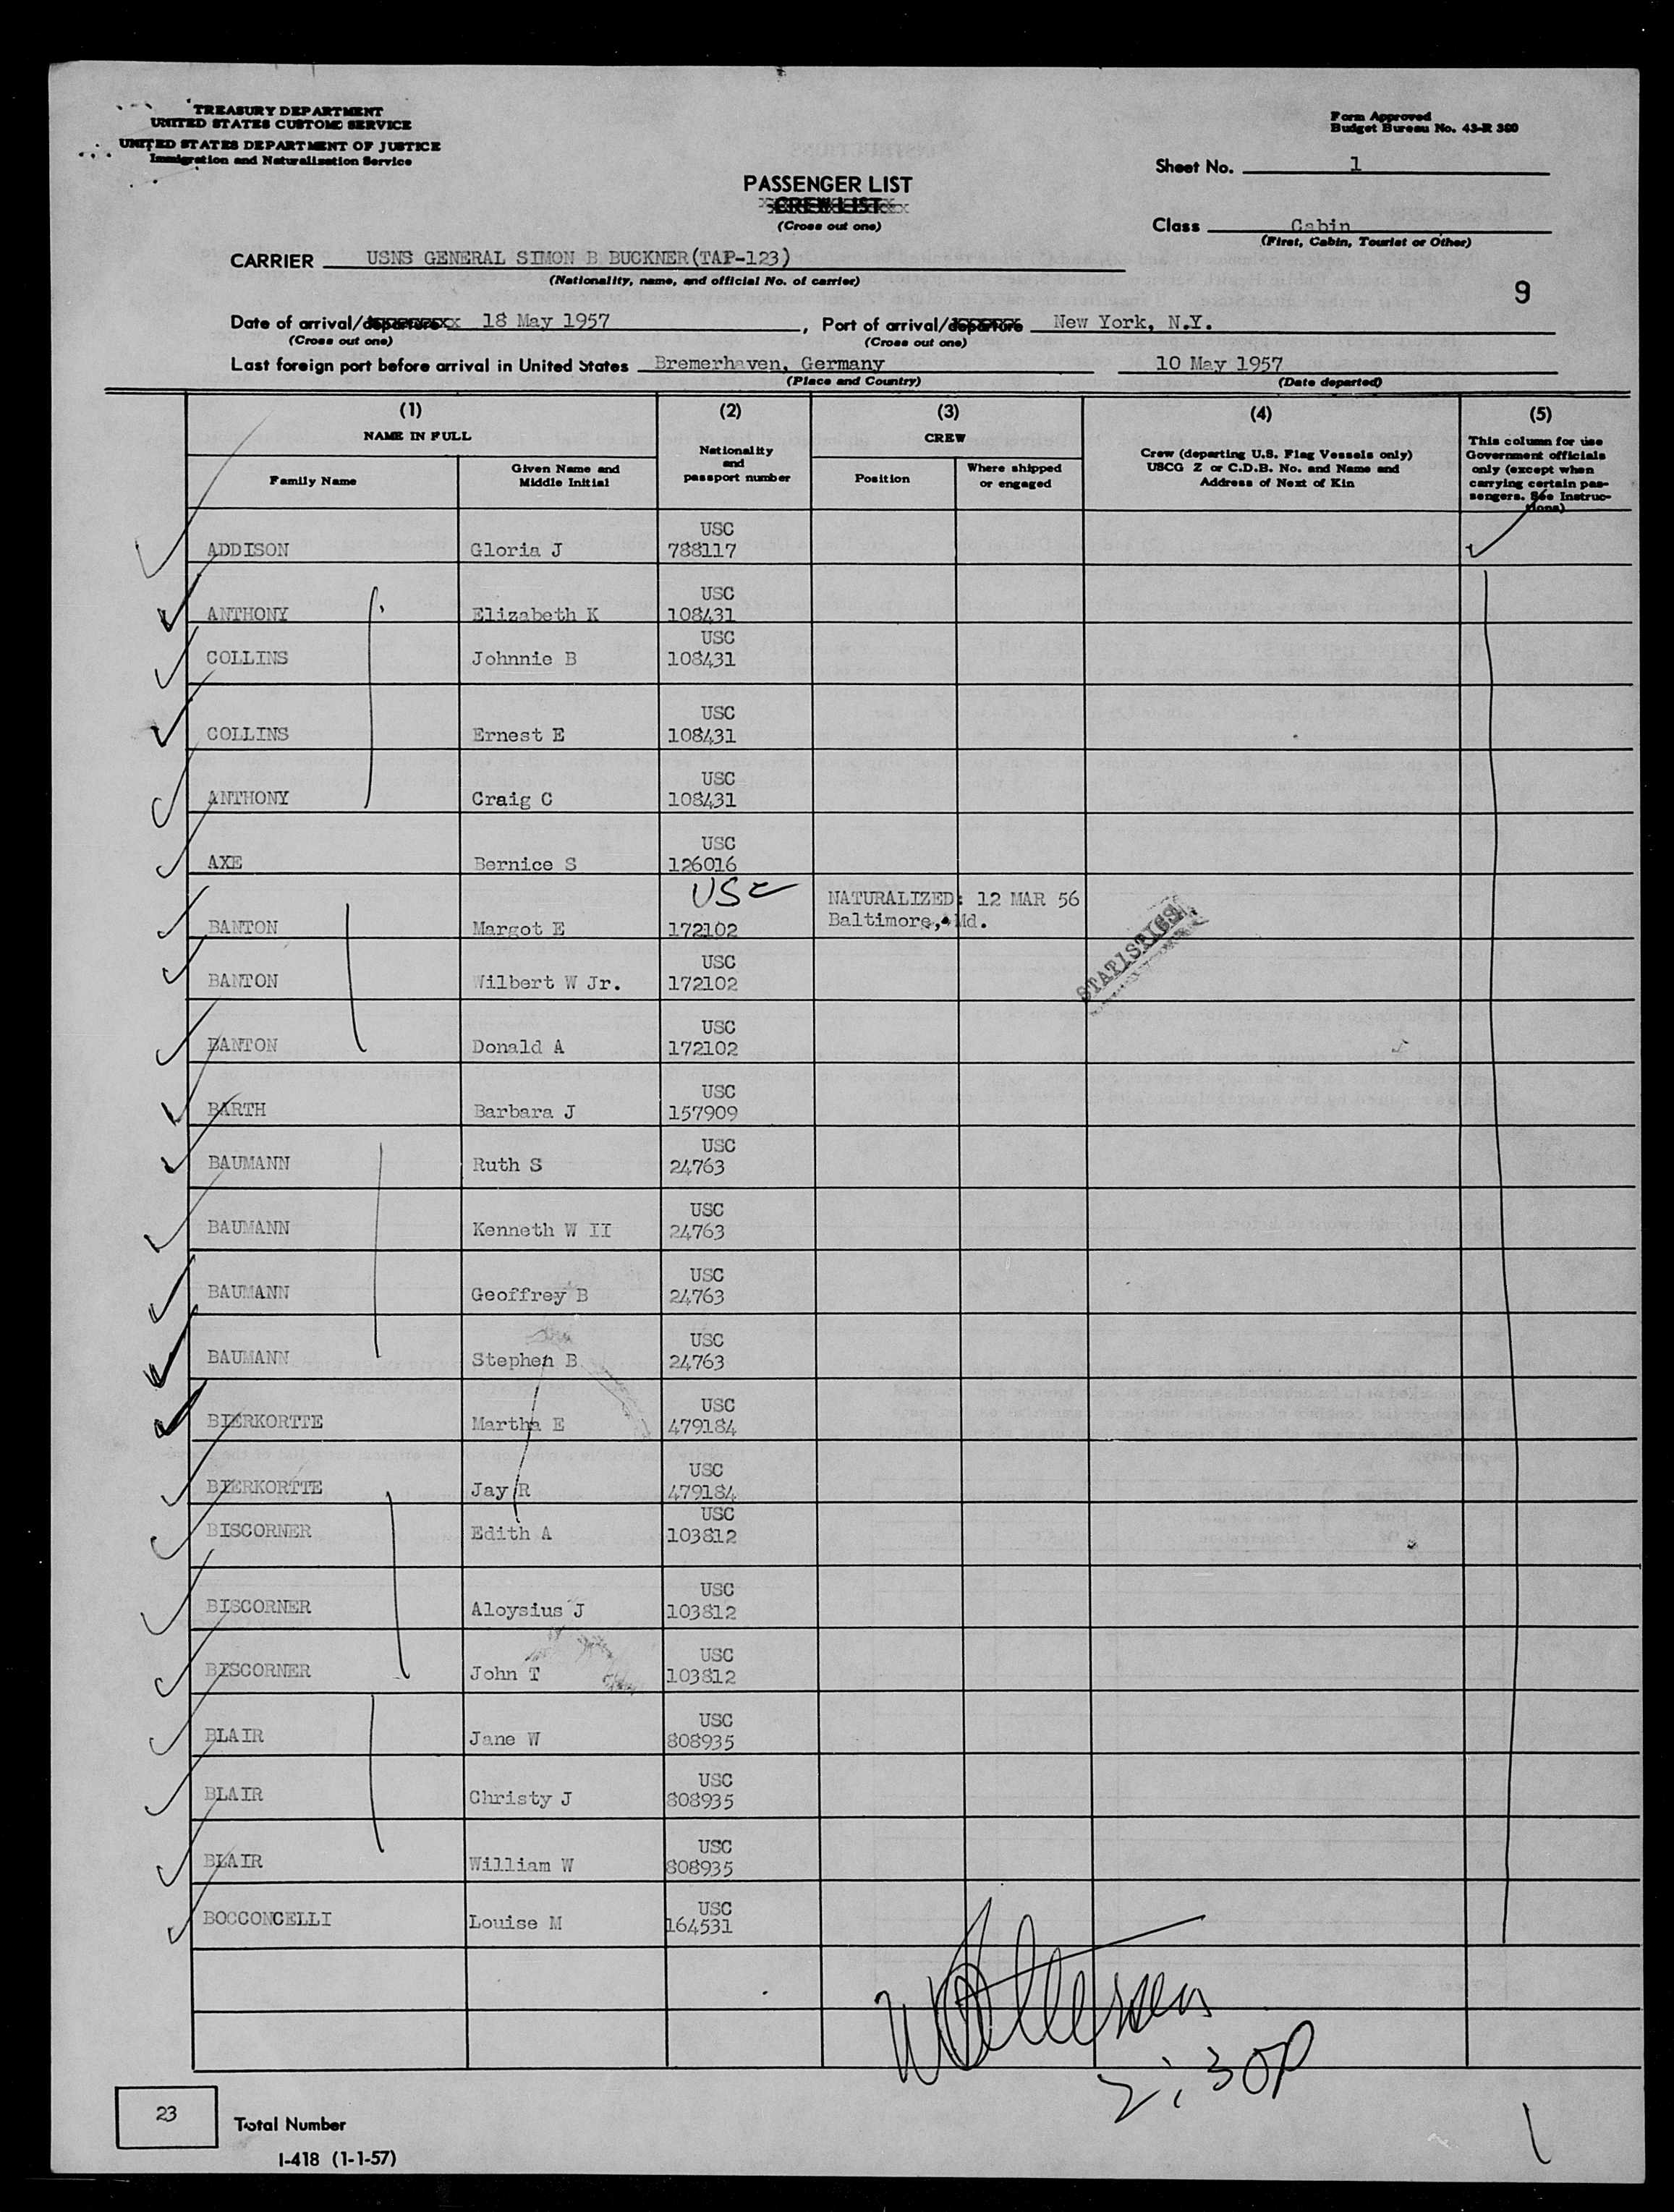 TREASURY DEPARTMENT
UNITED STATES CUSTOMS SERVICE
UNITED STATES DEPARTMENT OF JUSTICE
Immigration and Naturalization Service
Form Approved
Budget Bureau No. 43-R 360
Sheet No. 1
PASSENGER LIST
CREW LIST
(Cross out one)
Class Cabin
(First, Cabin, Tourist or Other)
CARRIER USNS GENERAL SIMON B BUCKNER(TAP-123)
(Nationality, name, and official No. of carrier)
9
Date of arrival/departure 18 May 1957, Port of arrival/departure New York, N.Y.
(Cross out one) (Cross out one)
Last foreign port before arrival in United States Bremerhaven, Germany 10 May 1957
(Place and Country) (Date departed)
(1) (2) (3) (4) (5)
NAME IN FULL
Family Name
Given Name and
Middle Initial
Nationality
and
passport number
CREW
Position
Where shipped
or engaged
Crew (departing U.S. Flag Vessels only)
USCG Z or C.D.B. No. and Name and
Address of Next of Kin
This column for use
Government officials
only (except when
carrying certain pas-
sengers. See Instruc-
tions)
USC
ADDISON Gloria J 788117
USC
ANTHONY Elizabeth K 108431
USC
COLLINS Johnnie B 108431
USC
COLLINS Ernest E 108431
USC
ANTHONY Craig C 108431
USC
AXE Bernice S 126016
USC NATURALIZED: 12 MAR 56
BANTON Margot E 172102 Baltimore, Md.
STATISTICS
USC
BANTON Wilbert W Jr. 172102
USC
BANTON Donald A 172102
USC
BARTH Barbara J 157909
USC
BAUMANN Ruth S 24763
USC
BAUMANN Kenneth W II 24763
USC
BAUMANN Geoffrey B 24763
USC
BAUMANN Stephen B 24763
USC
BIERKORTTE Martha E 479184
USC
BIERKORTTE Jay R 479184
USC
BISCORNER Edith A 103812
USC
BISCORNER Aloysius J 103812
USC
BISCORNER John T 103812
USC
BLAIR Jane W 808935
USC
BLAIR Christy J 808935
USC
BLAIR William W 808935
USC
BOCCONCELLI Louise M 164531
2:30P
23 Total Number
I-418 (1-1-57)